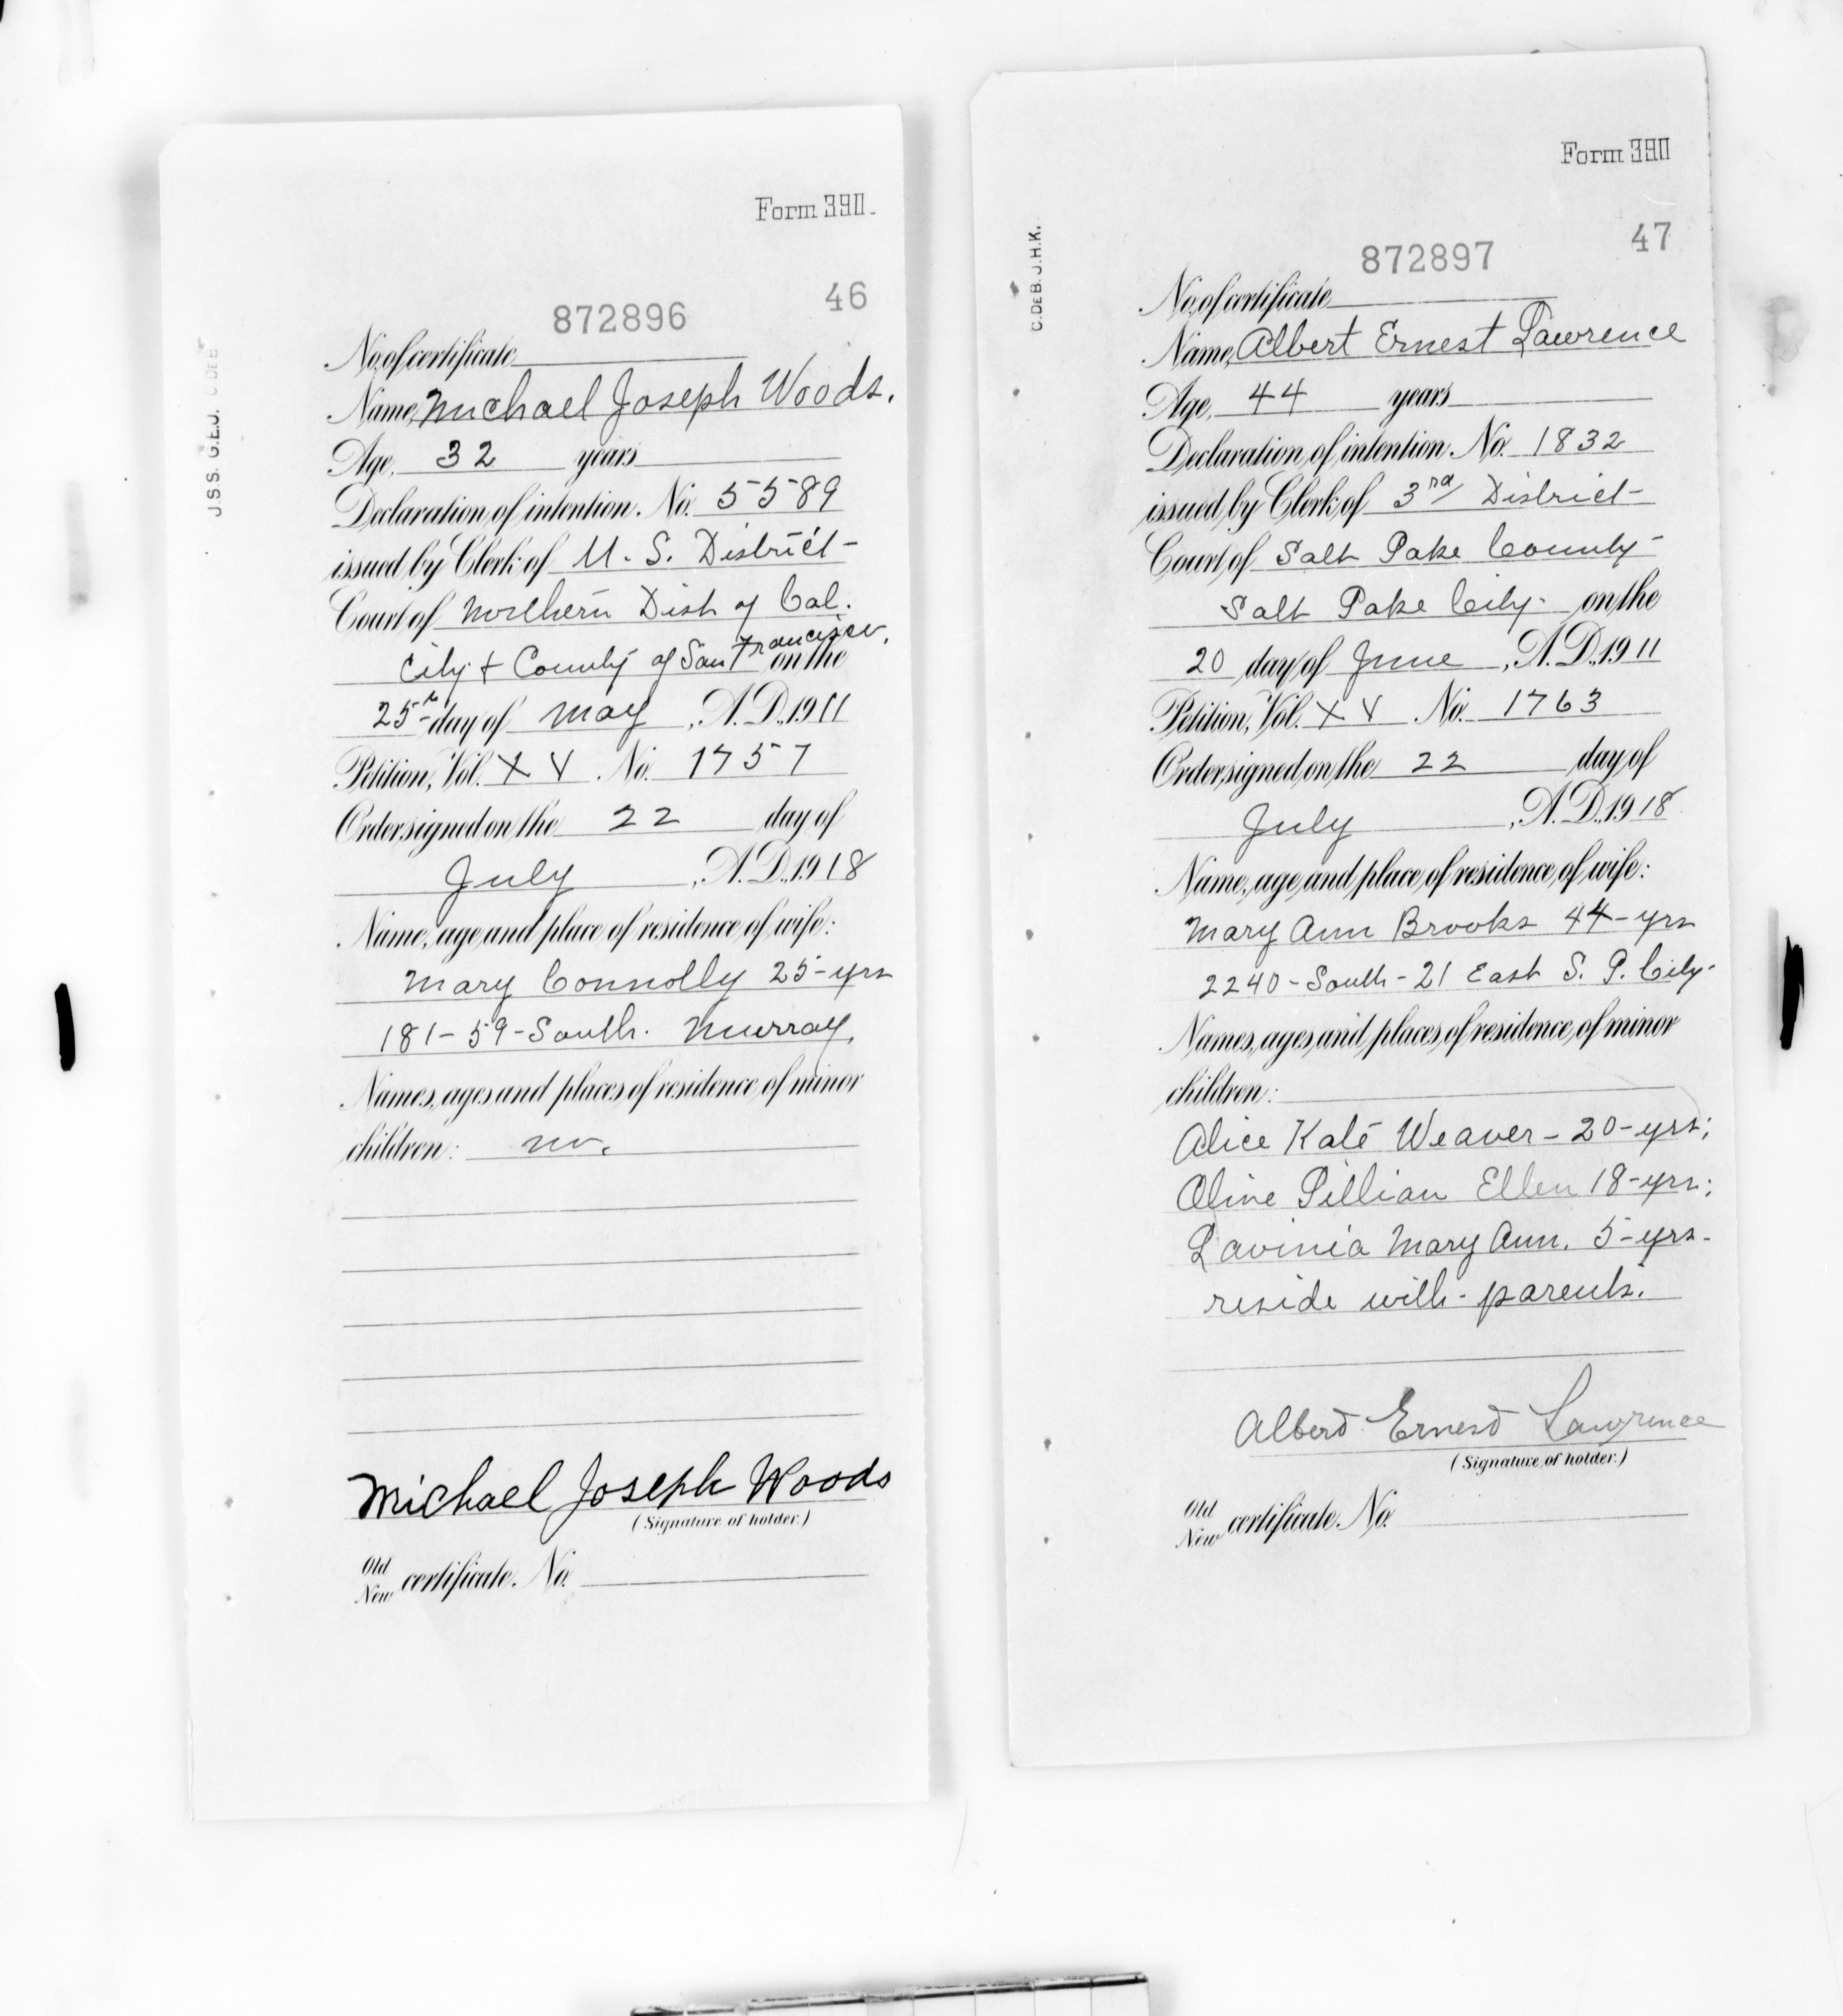 Form 390.
46
872896
J.S.S. G.E.J. C DEB
No. of certificate
Name, Michael Joseph Woods.
Age, 32 years
Declaration of intention. No. 5589
issued by Clerk of U. S. District
Court of Northern Dist of Cal.
City & County of San Francisco, on the
25th day of May, A.D. 1911
Petition, Vol. XV. No. 1757
Order signed on the 22 day of
July, A.D. 1918
Name, age and place of residence of wife:
Mary Connolly 25-yrs
181-59-South. Murray,
Names, ages and places of residence of minor
children: no.
Michael Joseph Woods
(Signature of holder.)
Old
New certificate. No.
Form 390
47
872897
C.DEB. J.H.K.
No. of certificate
Name, Albert Ernest Lawrence
Age, 44 years
Declaration of intention. No. 1832
issued by Clerk of 3rd District
Court of Salt Lake County
Salt Lake City. on the
20 day of June, A.D. 1911
Petition, Vol. XV. No. 1763
Order signed on the 22 day of
July, A.D. 1918
Name, age and place of residence of wife:
Mary Ann Brooks 44-yrs
2240-South-21 East S. L. City.
Names, ages and places of residence of minor
children:
Alice Kate Weaver-20-yrs;
Olive Lillian Ellen 18-yrs;
Lavinia Mary Ann. 5-yrs-
reside with-parents.
Albert Ernest Lawrence
(Signature of holder.)
Old
New certificate. No.